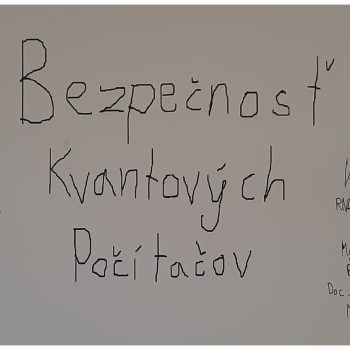 Bezpečnosť
Kvantových
Počítačov
Doc.